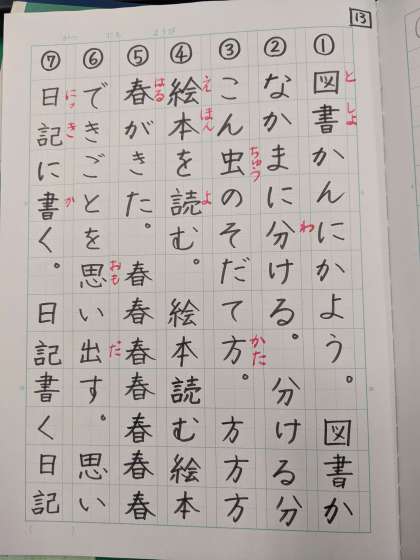 13
① 図書かんにかよう。 図書か
と しょ
② なかまに分ける。 分ける分
わ
③ こん虫のそだて方。 方方方
ちゅう かた
④ 絵本を読む。 絵本読む絵本
え ほん よ
⑤ 春がきた。 春春春春春春春
はる
⑥ できごとを思い出す。 思い
おも だ
⑦ 日記に書く。 日記書く日記
にっ き か